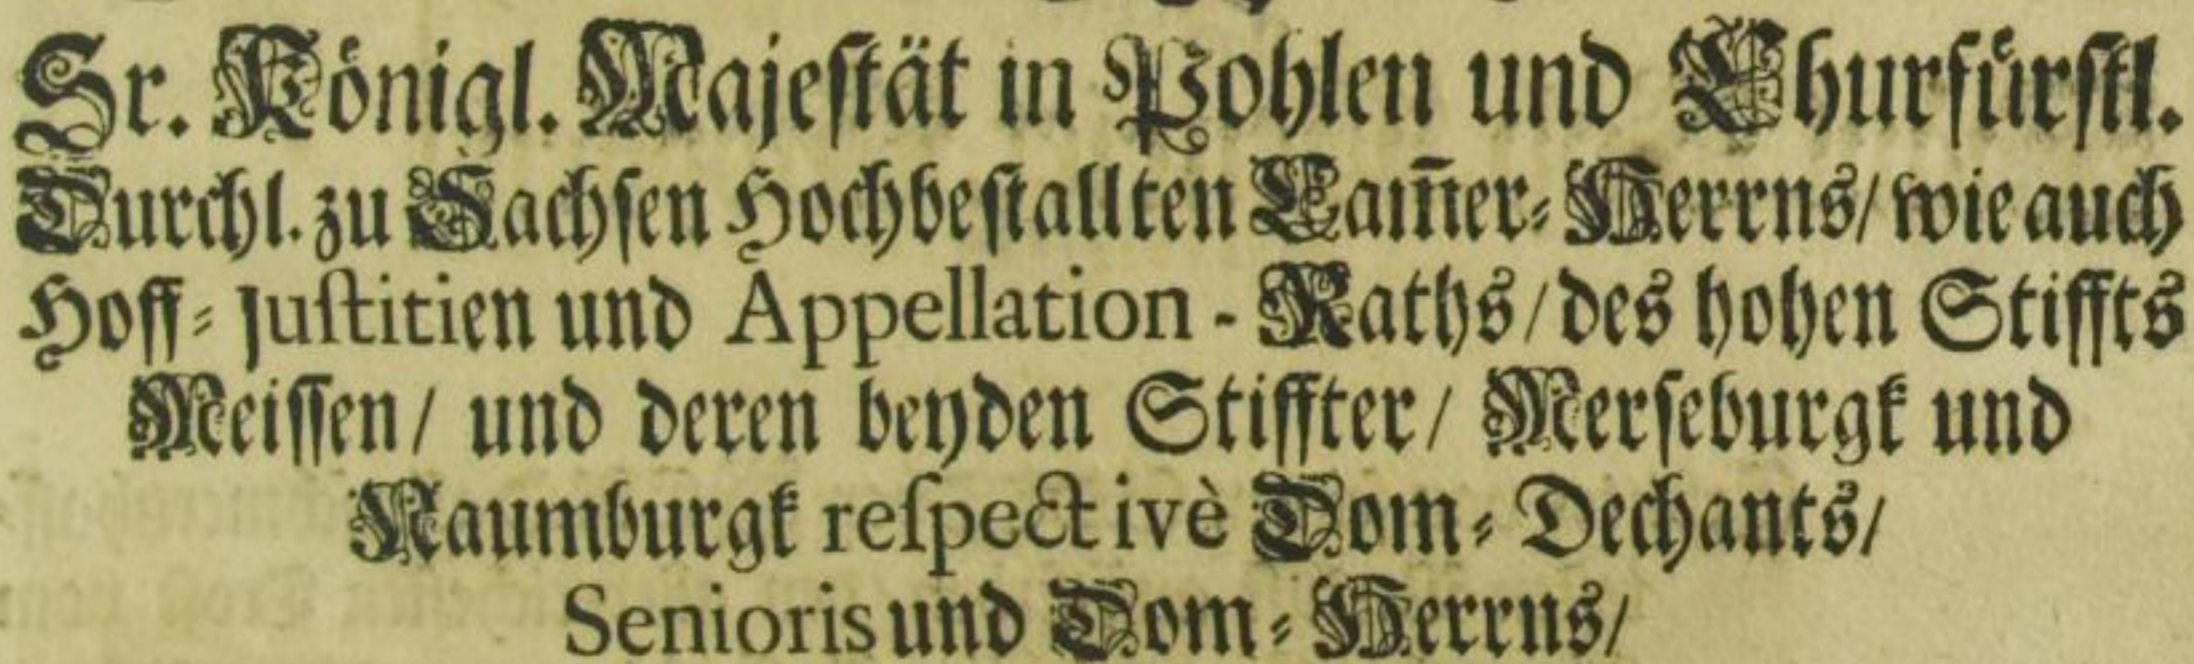 Sr. Königl. Majeſtät in Pohlen und Churfürſtl.
Durchl. zu Sachſen Hochbeſtallten Cam̃er-Herrns/ wie auch
Hoff-Juſtitien und Appellation-Raths/ des hohen Stiffts
Meiſſen/ und deren beyden Stiffter/ Merſeburgk und
Naumburgk reſpectivè Dom-Dechants/
Senioris und Dom-Herrns/